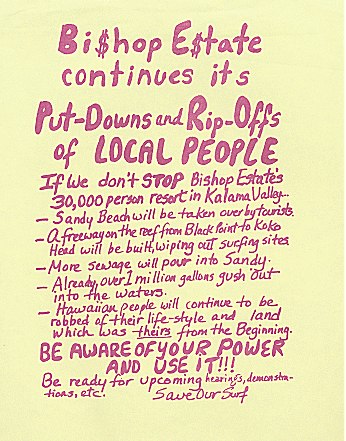 Bi$hop E$tate
continues its
Put-Downs and Rip-Offs
of LOCAL PEOPLE
If We don't STOP Bishop Estate's
30,000 person resort in Kalama Valley...
- Sandy Beach will be taken over by tourists.
- A freeway on the reef from Black Point to Koko
Head will be built, wiping out surfing sites
- More sewage will pour into Sandy.
- Already, over 1 million gallons gush out
into the waters.
- Hawaiian people will continue to be
robbed of their life-style and land
which was theirs from the Beginning.
BE AWARE OF YOUR POWER
AND USE IT!!!
Be ready for upcoming hearings, demonstra-
tions, etc. Save Our Surf